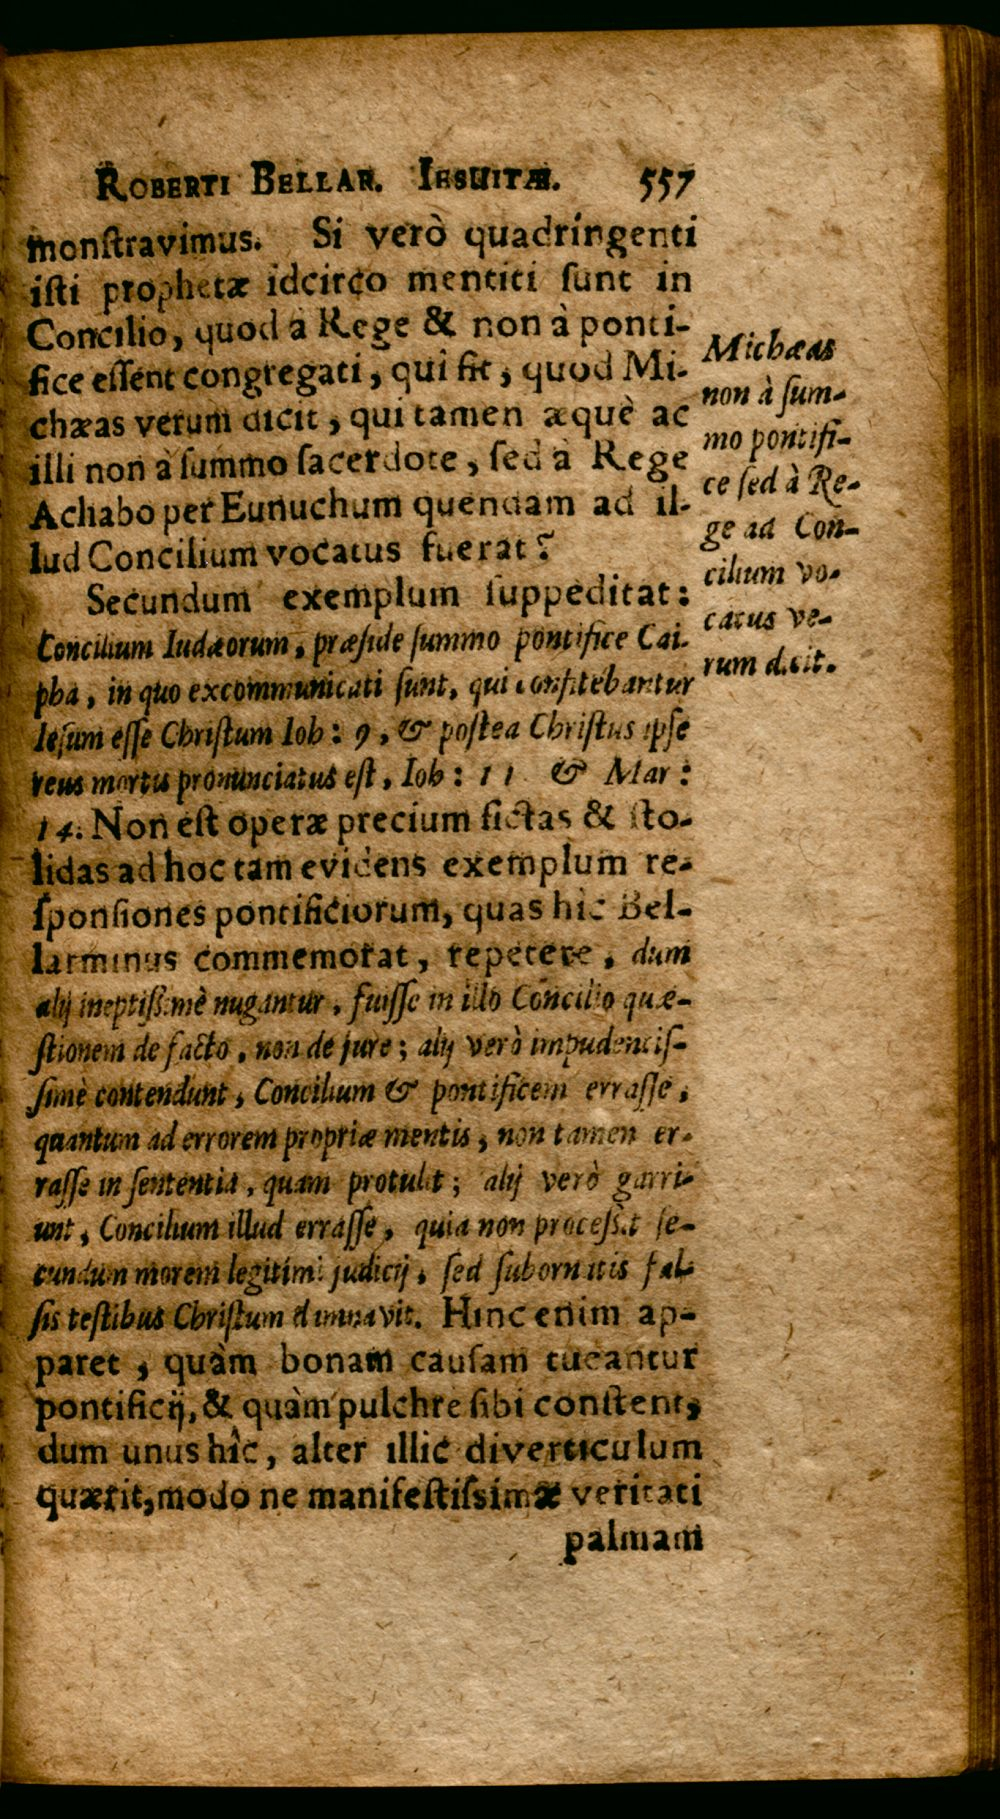 ROBERTI BELLAR. IESUITÆ. 557
monſtravimus. Si verò quadringenti
iſti prophetæ idcirco mentiti ſunt in
Concilio, quod à Rege & non à ponti-
fice eſſent congregati, quî fit, quod Mi-
chæas verum dicit, qui tamen æquè ac
illi non à ſummo ſacerdote, ſed à Rege
Achabo per Eunuchum quendam ad il-
lud Concilium vocatus fuerat?
Secundum exemplum ſuppeditat:
Concilium Iudæorum, præſide ſummo pontifice Cai-
pha, in quo excommunicati ſunt, qui confitebantur
Ieſum eſſe Chriſtum Ioh: 9, & poſtea Chriſtus ipſe
reus mortis pronunciatus eſt, Ioh: 11 & Mar:
14. Non eſt operæ precium fictas & ſto-
lidas ad hoc tam evidens exemplum re-
ſponſiones pontificiorum, quas hîc Bel-
larminus commemorat, repetere, dum
alij ineptiſsimè nugantur, fuiſſe in illo Concilio quæ-
ſtionem de facto, non de jure; alij verò impudentiſ-
ſimè contendunt, Concilium & pontificem erraſſe,
quantum ad errorem propriæ mentis, non tamen er-
raſſe in ſententia, quam protulit; alij verò garri-
unt, Concilium illud erraſſe, quia non proceſsit ſe-
cundum morem legitimi judicij, ſed ſubornatis fal-
ſis teſtibus Chriſtum damnavit. Hinc enim ap-
paret, quàm bonam cauſam tueantur
pontificij, & quàm pulchre ſibi conſtent,
dum unus hîc, alter illic diverticulum
quærit, modo ne manifeſtiſsimæ veritati
palmam
Michæas
non à ſum-
mo pontifi-
ce ſed à Re-
ge ad Con-
cilium vo-
catus ve-
rum dicit.